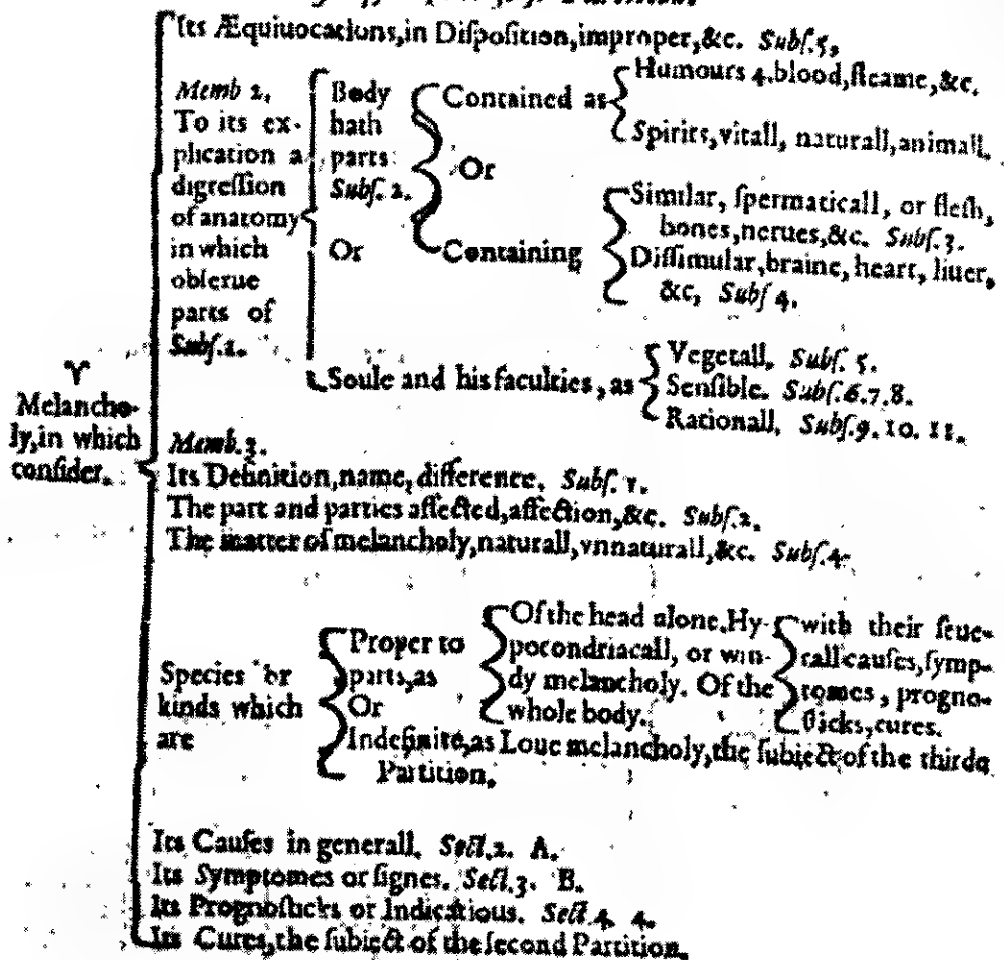 Its Æquiuocations, in Diſpoſition, improper, &c. Subſ. 5.
Memb 2.
To its ex-
plication a
digreſſion
of anatomy
in which
obſerue
parts of
Subſ. 1.
Body
hath
parts
Subſ. 2.
Contained as
Humours 4. blood, fleame, &c.
Spirits, vitall, naturall, animall.
Or
Containing
Similar, ſpermaticall, or fleſh,
bones, nerues, &c. Subſ. 3.
Diſſimular, braine, heart, liuer,
&c, Subſ 4.
Or
Soule and his faculties, as
Vegetall. Subſ. 5.
Senſible. Subſ. 6. 7. 8.
Rationall. Subſ. 9. 10. 11.
♈
Melancho-
ly, in which
conſider.
Memb. 3.
Its Definition, name, difference. Subſ. 1.
The part and parties affected, affection, &c. Subſ. 2.
The matter of melancholy, naturall, vnnaturall, &c. Subſ. 4.
Species or
kinds which
are
Proper to
parts, as
Of the head alone. Hy-
pocondriacall, or win-
dy melancholy. Of the
whole body.
with their ſeue-
rall cauſes, ſymp-
tomes, progno-
ſticks, cures.
Or
Indefinite, as Loue melancholy, the ſubiect of the third
Partition.
Its Cauſes in generall. Sect. 2. A.
Its Symptomes or ſignes. Sect. 3. B.
Its Prognoſticks or Indicatious. Sect. 4. 4.
Its Cures, the ſubiect of the ſecond Partition.